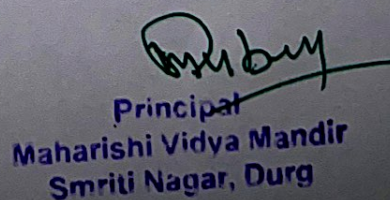 Principal
Maharishi Vidya Mandir
Smriti Nagar, Durg